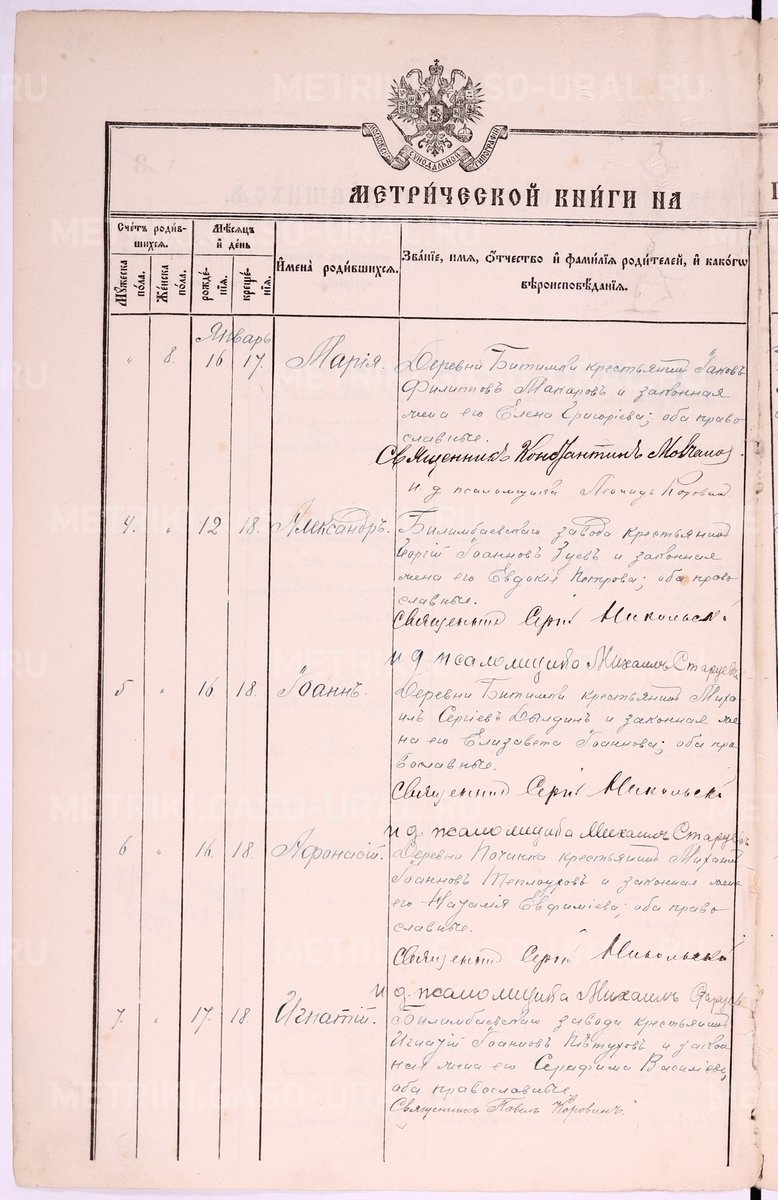 МОСКОВСКОЙ СѴНОДАЛЬНОЙ ТИПОГРАФІИ
МЕТРИ́ЧЕСКОЙ КНИ́ГИ НА
Сче́тъ роди́в-
шихсѧ.
Мꙋ́жеска
по́ла.
Же́нска
по́ла.
Мѣ́сѧцъ
и҆ де́нь
рожде́-
нїѧ.
креще́-
нїѧ.
И҆мена̀ роди́вшихсѧ.
Зва́нїе, и҆мѧ, ѻ҆́тчество и҆ фами́лїѧ роди́телей, и҆ како́гѡ
вѣроисповѣ́данїѧ.
Январь
" 8. 16 17. Марія. Деревни Битимки крестьянинъ Іаковъ
Филипповъ Макаровъ и законная
жена его Елена Григоріева; оба право
славные.
Священникъ Константинъ
и. д. псаломщика Леонидъ Коровин
4. " 12 18. Александръ. Билимбаевскаго завода крестьянинъ
Георгій Іоанновъ Зуевъ и законная
жена его Евдокія Петрова; оба право
славные.
Священникъ Сергій Никольскій
и д псаломщика Михаилъ Старцевъ
5 " 16 18. Іоаннъ. Деревни Битимки крестьянинъ Миха
илъ Сергіевъ и законная же
на его Елизавета Іоаннова; оба пра
вославные.
Священникъ Сергій Никольскій
и д. псаломщика Михаилъ Старцевъ
6 " 16 18. Афонасій. Деревни Починка крестьянинъ Михаилъ
Іоанновъ Теплоуховъ и законная жена
его Наталія Евфиміева; оба право
славные.
Священникъ Сергій Никольскій
и д. псаломщика Михаилъ Старцевъ
7. " 17. 18. Игнатій. Билимбаевскаго завода крестьянинъ
Игнатій Іоанновъ Пѣтуховъ и закон
ная жена его Серафима Василіева,
оба православные.
Священникъ Павелъ Коровинъ.
METRIKI.GASO-URAL.RU